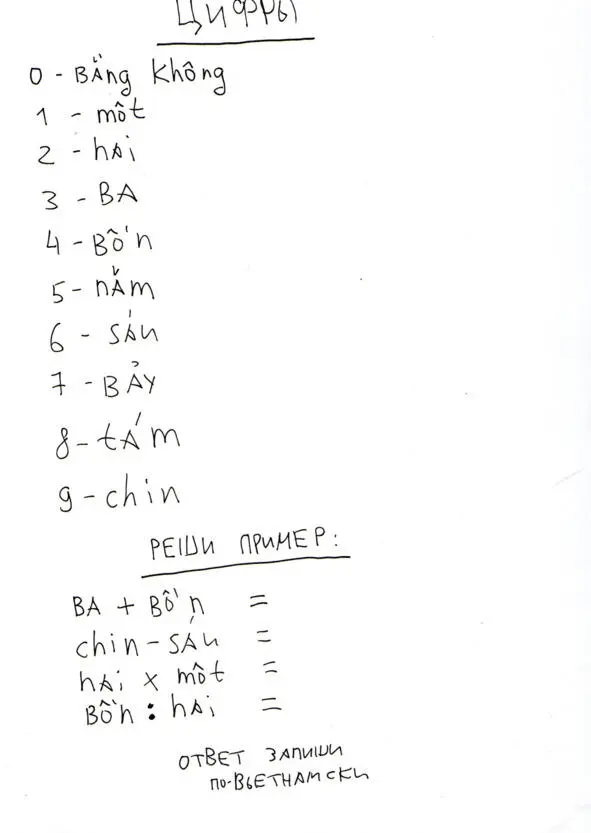 ЦИФРЫ
0 - BẰng Không
1 - một
2 - hAi
3 - BA
4 - Bốn
5 - nĂm
6 - SÁu
7 - BẢY
8 - tÁm
9 - chin
РЕШИ ПРИМЕР:
BA + Bốn =
chin - SÁu =
hAi x môt =
Bốn : hAi =
ОТВЕТ ЗАПИШИ
ПО-ВЬЕТНАМСКИ